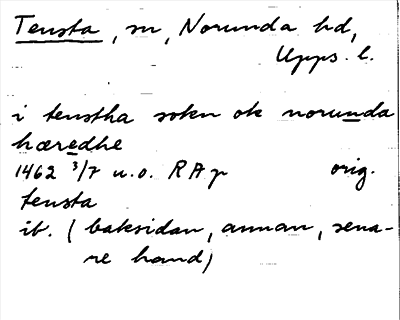 Tensta, sn, Norunda hd,
Upps. l.
i tenstha sokn ok norunda
hæredhe
1462 3/7 u.o. RAp orig.
tensta
ib. (baksidan, annan, sena-
re hand)